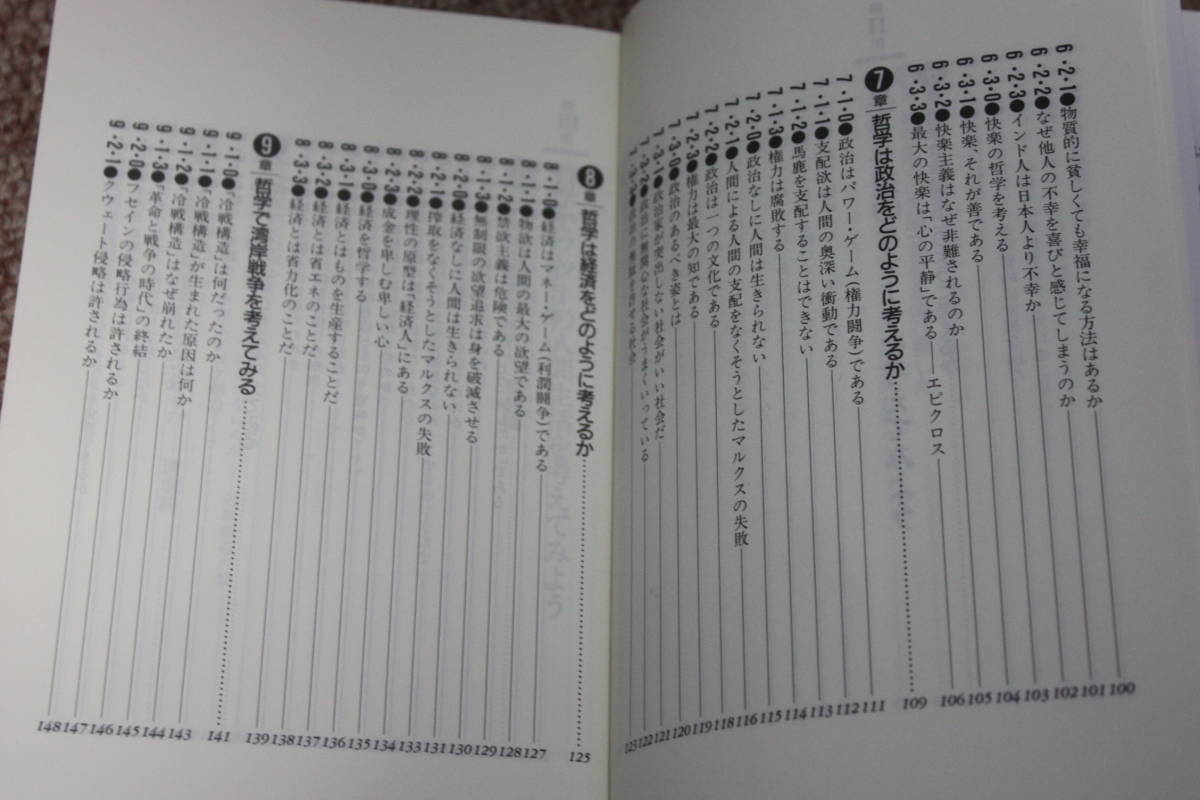 6・2・1●物質的に貧しくても幸福になる方法はあるか 100
6・2・2●なぜ他人の不幸を喜びと感じてしまうのか 101
6・2・3●インド人は日本人より不幸か 102
6・3・0●快楽の哲学を考える 103
6・3・1●快楽、それが善である 104
6・3・2●快楽主義はなぜ非難されるのか 105
6・3・3●最大の快楽は「心の平静」である──エピクロス 106
7章 哲学は政治をどのように考えるか 109
7・1・0●政治はパワー・ゲーム(権力闘争)である 111
7・1・1●支配欲は人間の奥深い衝動である 112
7・1・2●馬鹿を支配することはできない 113
7・1・3●権力は腐敗する 114
7・2・0●政治なしに人間は生きられない 115
7・2・1●人間による人間の支配をなくそうとしたマルクスの失敗 116
7・2・2●政治は一つの文化である 118
7・2・3●権力は最大の知である 119
7・3・0●政治のあるべき姿とは 120
7・3・1●政治家が突出しない社会がいい社会だ 121
7・3・2●政治に無関心な社会がうまくいっている 122
社会 123
8章 哲学は経済をどのように考えるか 125
8・1・0●経済はマネー・ゲーム(利潤闘争)である 127
8・1・1●物欲は人間の最大の欲望である 128
8・1・2●禁欲主義は危険である 129
8・1・3●無制限の欲望追求は身を破滅させる 130
8・2・0●経済なしに人間は生きられない 131
8・2・1●搾取をなくそうとしたマルクスの失敗 133
8・2・2●理性の原型は「経済人」にある 134
8・2・3●成金を卑しむ卑しい心 135
8・3・0●経済を哲学する 136
8・3・1●経済とはものを生産することだ 137
8・3・2●経済とは省エネのことだ 138
8・3・3●経済とは省力化のことだ 139
9章 哲学で湾岸戦争を考えてみる 141
9・1・0●「冷戦構造」は何だったのか 143
9・1・1●「冷戦構造」が生まれた原因は何か 144
9・1・2●「冷戦構造」はなぜ崩れたか 145
9・1・3●「革命と戦争の時代」の終結 146
9・2・0●フセインの侵略行為は許されるか 147
9・2・1●クウェート侵略は許されるか 148